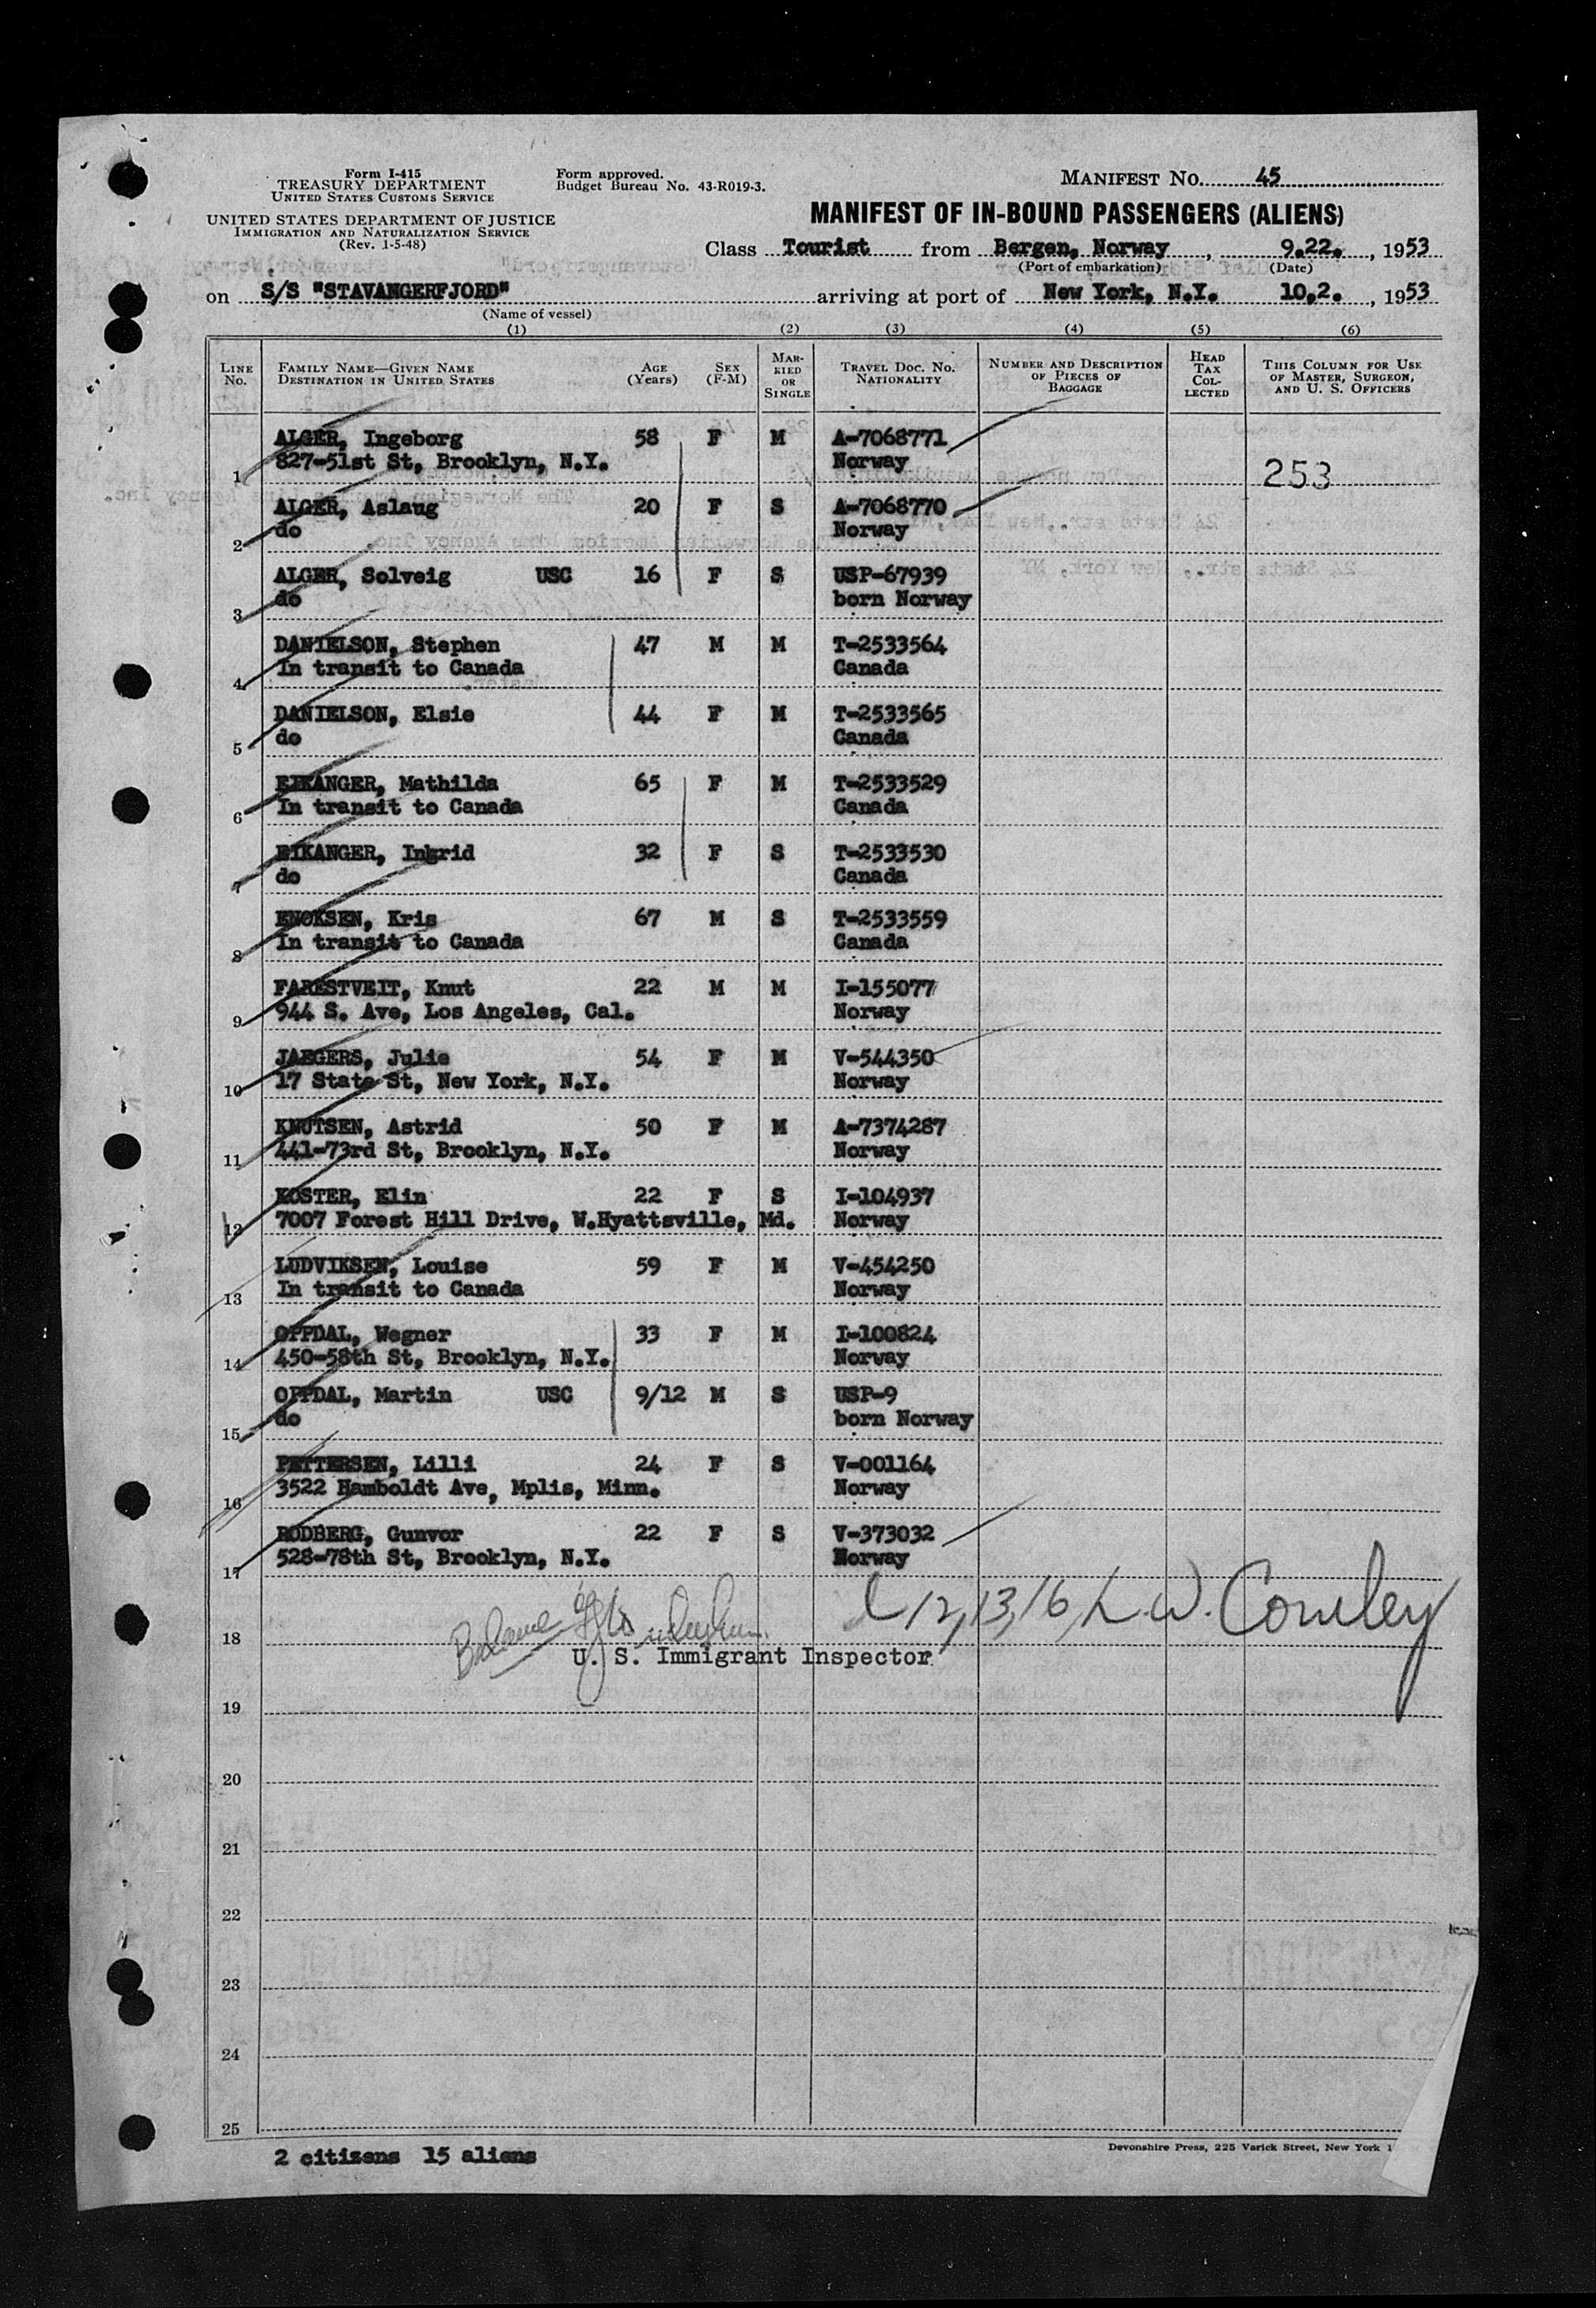 Form I-415
TREASURY DEPARTMENT
UNITED STATES CUSTOMS SERVICE
UNITED STATES DEPARTMENT OF JUSTICE
IMMIGRATION AND NATURALIZATION SERVICE
(Rev. 1-5-48)
Form approved.
Budget Bureau No. 43-R019-3.
MANIFEST NO. 45
MANIFEST OF IN-BOUND PASSENGERS (ALIENS)
Class Tourist from Bergen, Norway, 9.22., 1953
(Port of embarkation) (Date)
on S/S "STAVANGERFJORD" arriving at port of New York, N.Y. 10.2., 1953
(Name of vessel)
(1) (2) (3) (4) (5) (6)
LINE No. FAMILY NAME—GIVEN NAME DESTINATION IN UNITED STATES AGE (Years) SEX (F-M) MARRIED OR SINGLE TRAVEL DOC. NO. NATIONALITY NUMBER AND DESCRIPTION OF PIECES OF BAGGAGE HEAD TAX COLLECTED THIS COLUMN FOR USE OF MASTER, SURGEON, AND U. S. OFFICERS
ALGER, Ingeborg 58 F M A-7068771
1 827-51st St, Brooklyn, N.Y. Norway 253
ALGER, Aslaug 20 F S A-7068770
2 do Norway
ALGER, Solveig USC 16 F S USP-67939
3 do born Norway
DANIELSON, Stephen 47 M M T-2533564
4 In transit to Canada Canada
DANIELSON, Elsie 44 F M T-2533565
5 do Canada
EIKANGER, Mathilda 65 F M T-2533529
6 In transit to Canada Canada
EIKANGER, Ingrid 32 F S T-2533530
7 do Canada
ENOKSEN, Kris 67 M S T-2533559
8 In transit to Canada Canada
FARESTVEIT, Knut 22 M M I-155077
9 944 S. Ave, Los Angeles, Cal. Norway
JAEGERS, Julie 54 F M V-544350
10 17 State St, New York, N.Y. Norway
KNUTSEN, Astrid 50 F M A-7374287
11 441-73rd St, Brooklyn, N.Y. Norway
KOSTER, Elin 22 F S I-104937
12 7007 Forest Hill Drive, W.Hyattsville, Md. Norway
LUDVIKSEN, Louise 59 F M V-454250
13 In transit to Canada Norway
OPPDAL, Wegner 33 F M I-100824
14 450-58th St, Brooklyn, N.Y. Norway
OPPDAL, Martin USC 9/12 M S USP-9
15 do born Norway
PETTERSEN, Lilli 24 F S V-001164
16 3522 Hamboldt Ave, Mplis, Minn. Norway
RODBERG, Gunvor 22 F S V-373032
17 528-78th St, Brooklyn, N.Y. Norway
Balance of L 12, 13, 16, L.W. Cowley
18
U. S. Immigrant Inspector
19
20
21
22
23
24
25
2 citizens 15 aliens
Devonshire Press, 225 Varick Street, New York 1